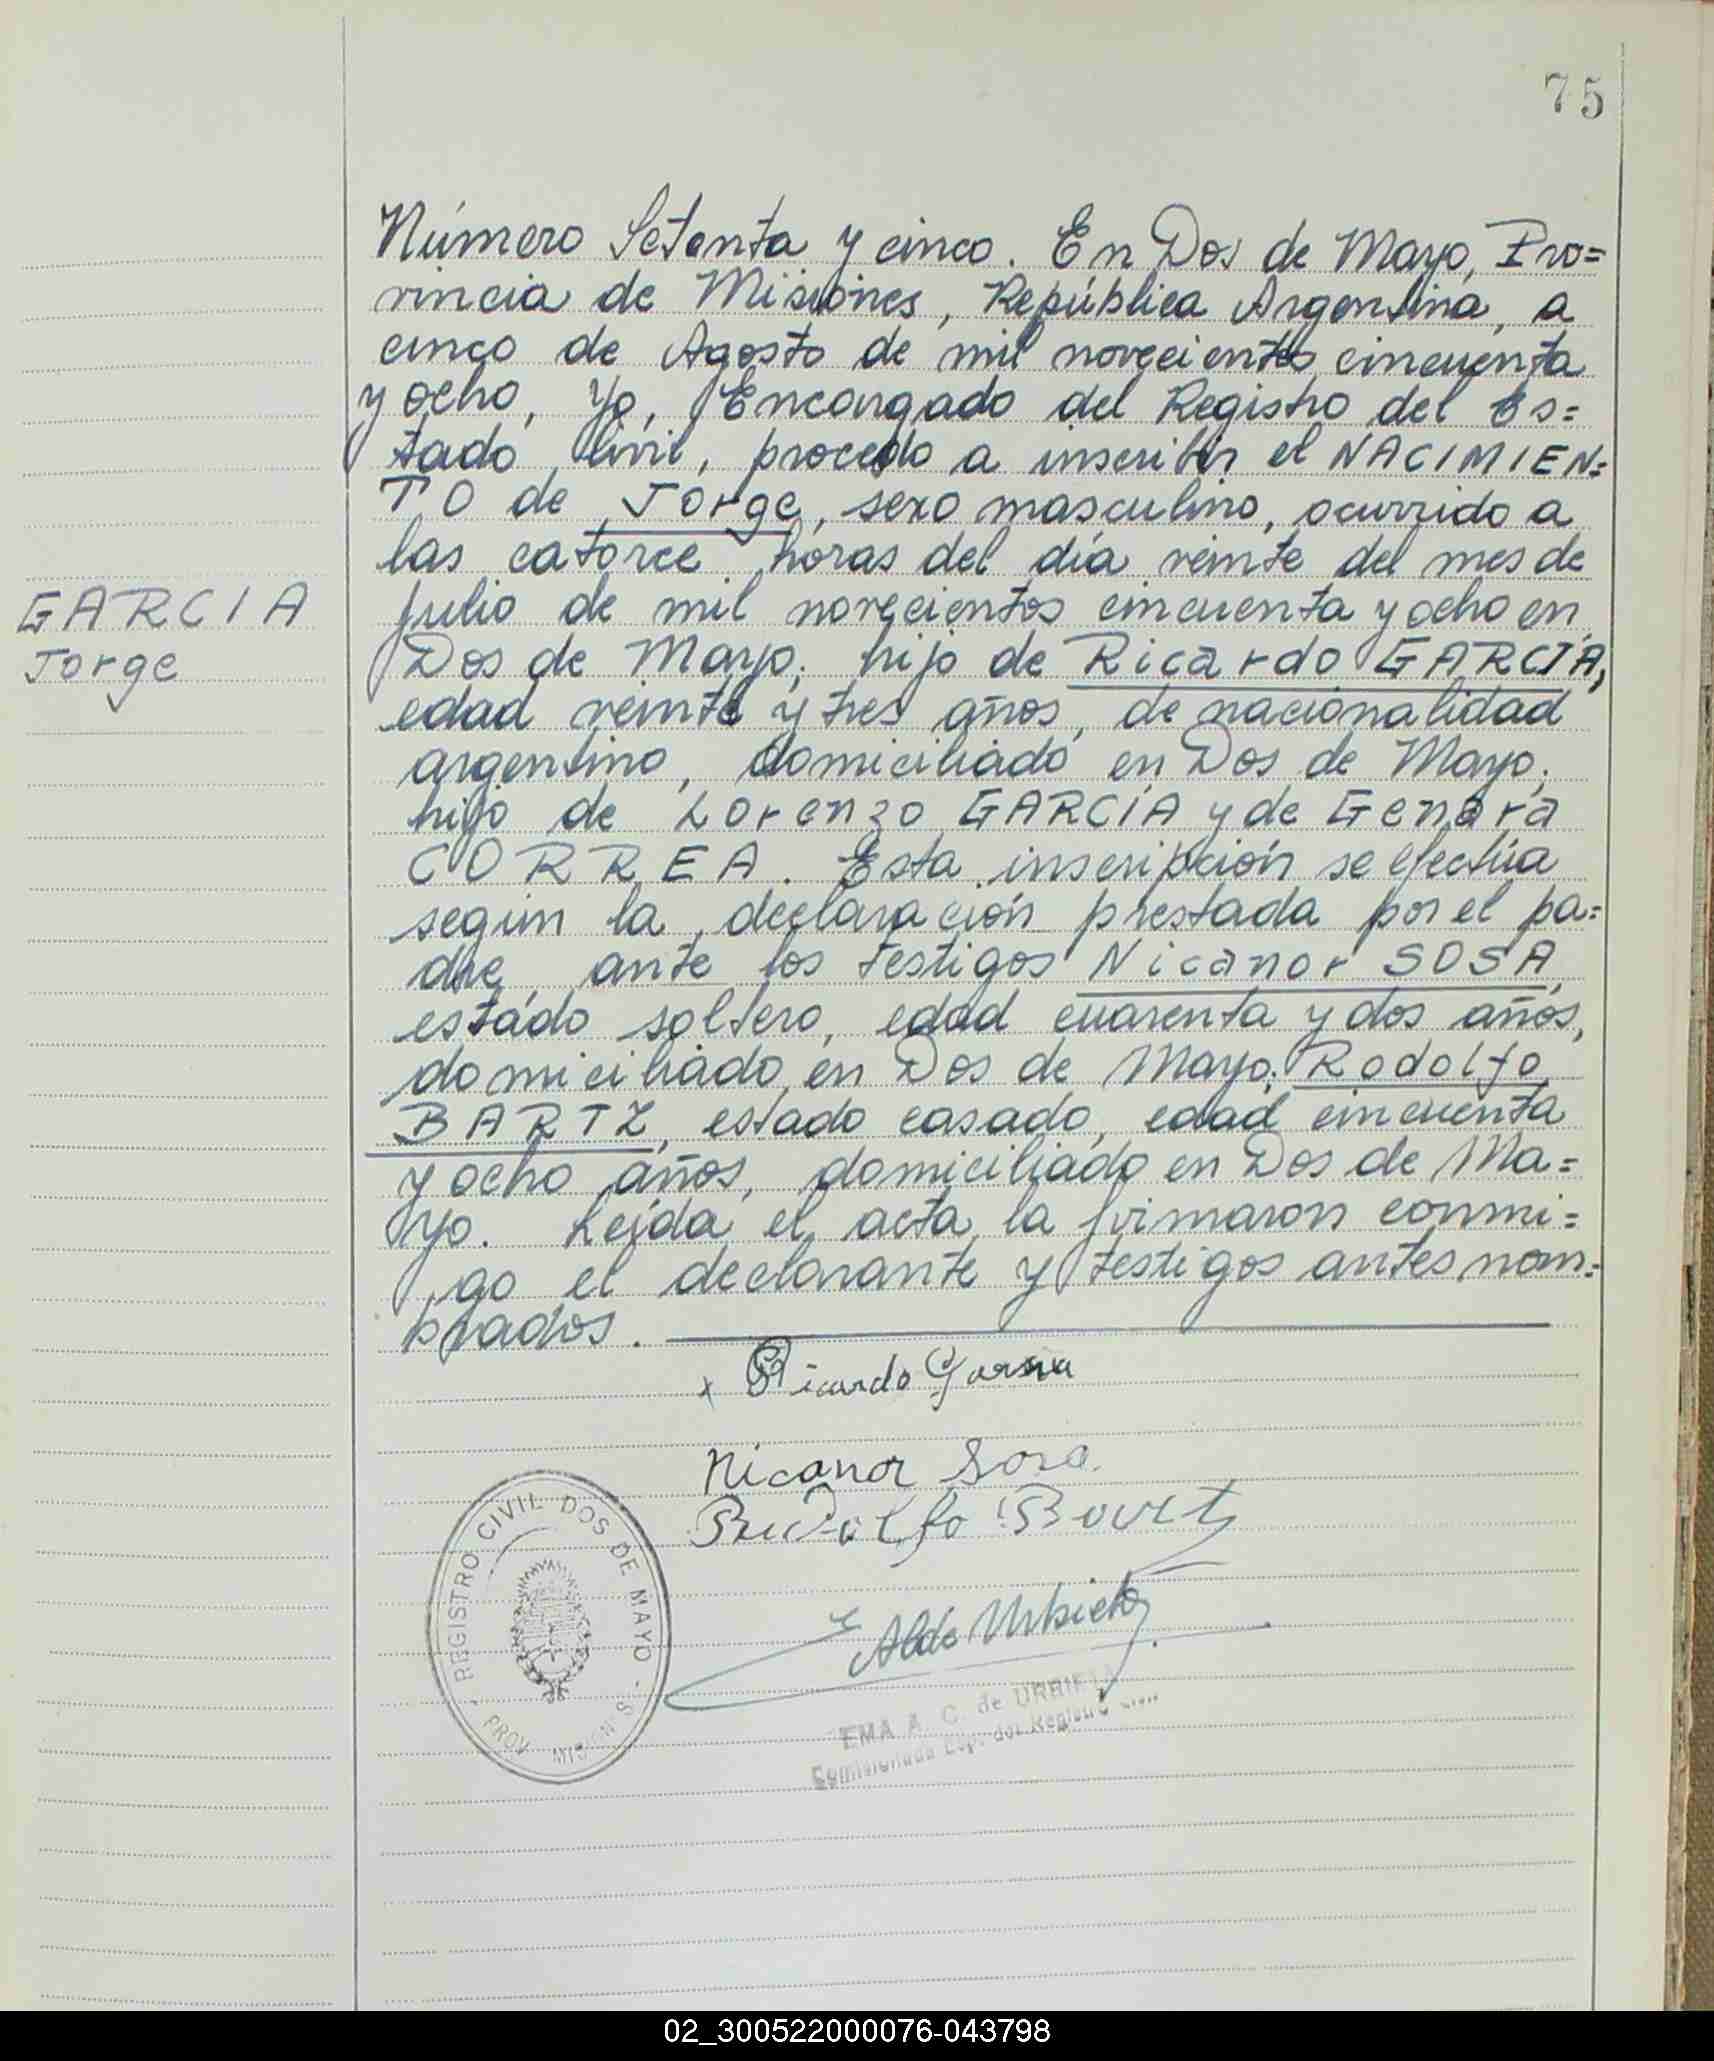 75
Número Setenta y cinco. En Dos de Mayo, Pro=
vincia de Misiones, República Argentina, a
cinco de Agosto de mil novecientos cincuenta
y ocho, Yo, Encargado del Registro del Es=
tado Civil, procedo a inscribir el NACIMIEN=
TO de Jorge, sexo masculino, ocurrido a
las catorce horas del día veinte del mes de
GARCIA
Jorge
julio de mil novecientos cincuenta y ocho en
Dos de Mayo; hijo de Ricardo GARCIA,
edad veinte y tres años, de nacionalidad
argentino, domiciliado en Dos de Mayo;
hijo de Lorenzo GARCIA y de Genara
CORREA. Esta inscripción se efectúa
según la declaración prestada por el pa=
dre, ante los testigos Nicanor SOSA,
estado soltero, edad cuarenta y dos años,
domiciliado en Dos de Mayo; Rodolfo
BARTZ, estado casado, edad cincuenta
y ocho años, domiciliado en Dos de Ma=
yo. Leída el acta, la firmaron conmi=
go el declarante y testigos antes nom=
brados.
x Ricardo Garsia
Nicanor Sosa.
Rudolfo Bartz
REGISTRO CIVIL DOS DE MAYO
PROV. MISIONES
EMA A. C. de URBIETA
02_300522000076-043798